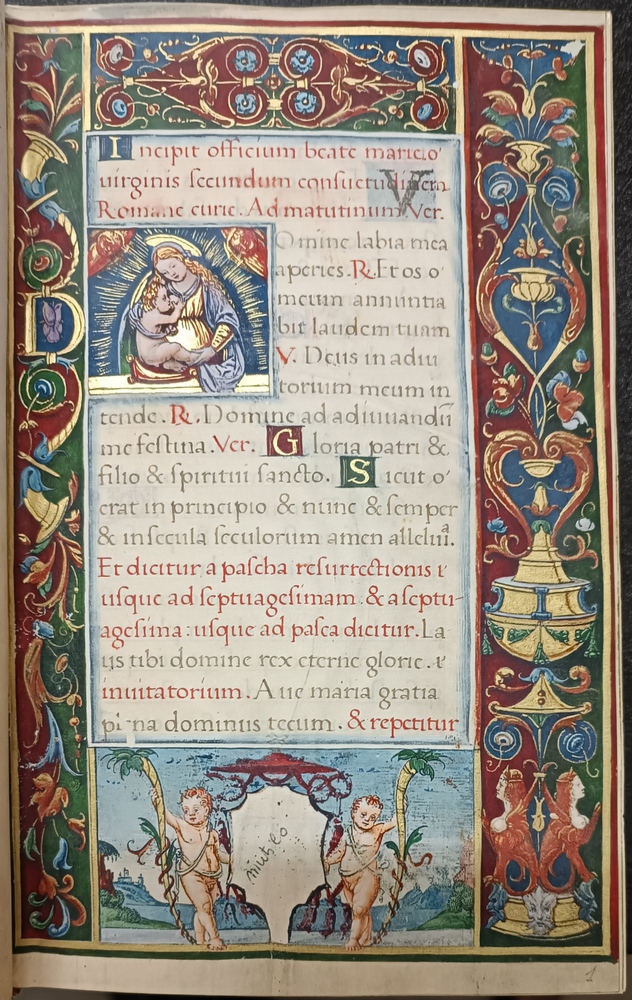 Incipit officium beate marie o'
uirginis secundum consuetudinem
Romane curie. Ad matutinum Ver.
Omine labia mea
aperies. R. Et os o'
meum annuntia
bit laudem tuam
V. Deus in adiu
torium meum in
tende. R. Domine ad adiuuandū
me festina. Ver. Gloria patri &
filio & spiritui sancto. Sicut o'
erat in principio & nunc & semper
& in secula seculorum amen alleluia.
Et dicitur a pascha resurrectionis
usque ad septuagesimam & a septu-
agesima: usque ad pasca dicitur. La
us tibi domine rex eterne glorie.
inuitatorium. Aue maria gratia
plena dominus tecum. & repetitur
mutilo
1